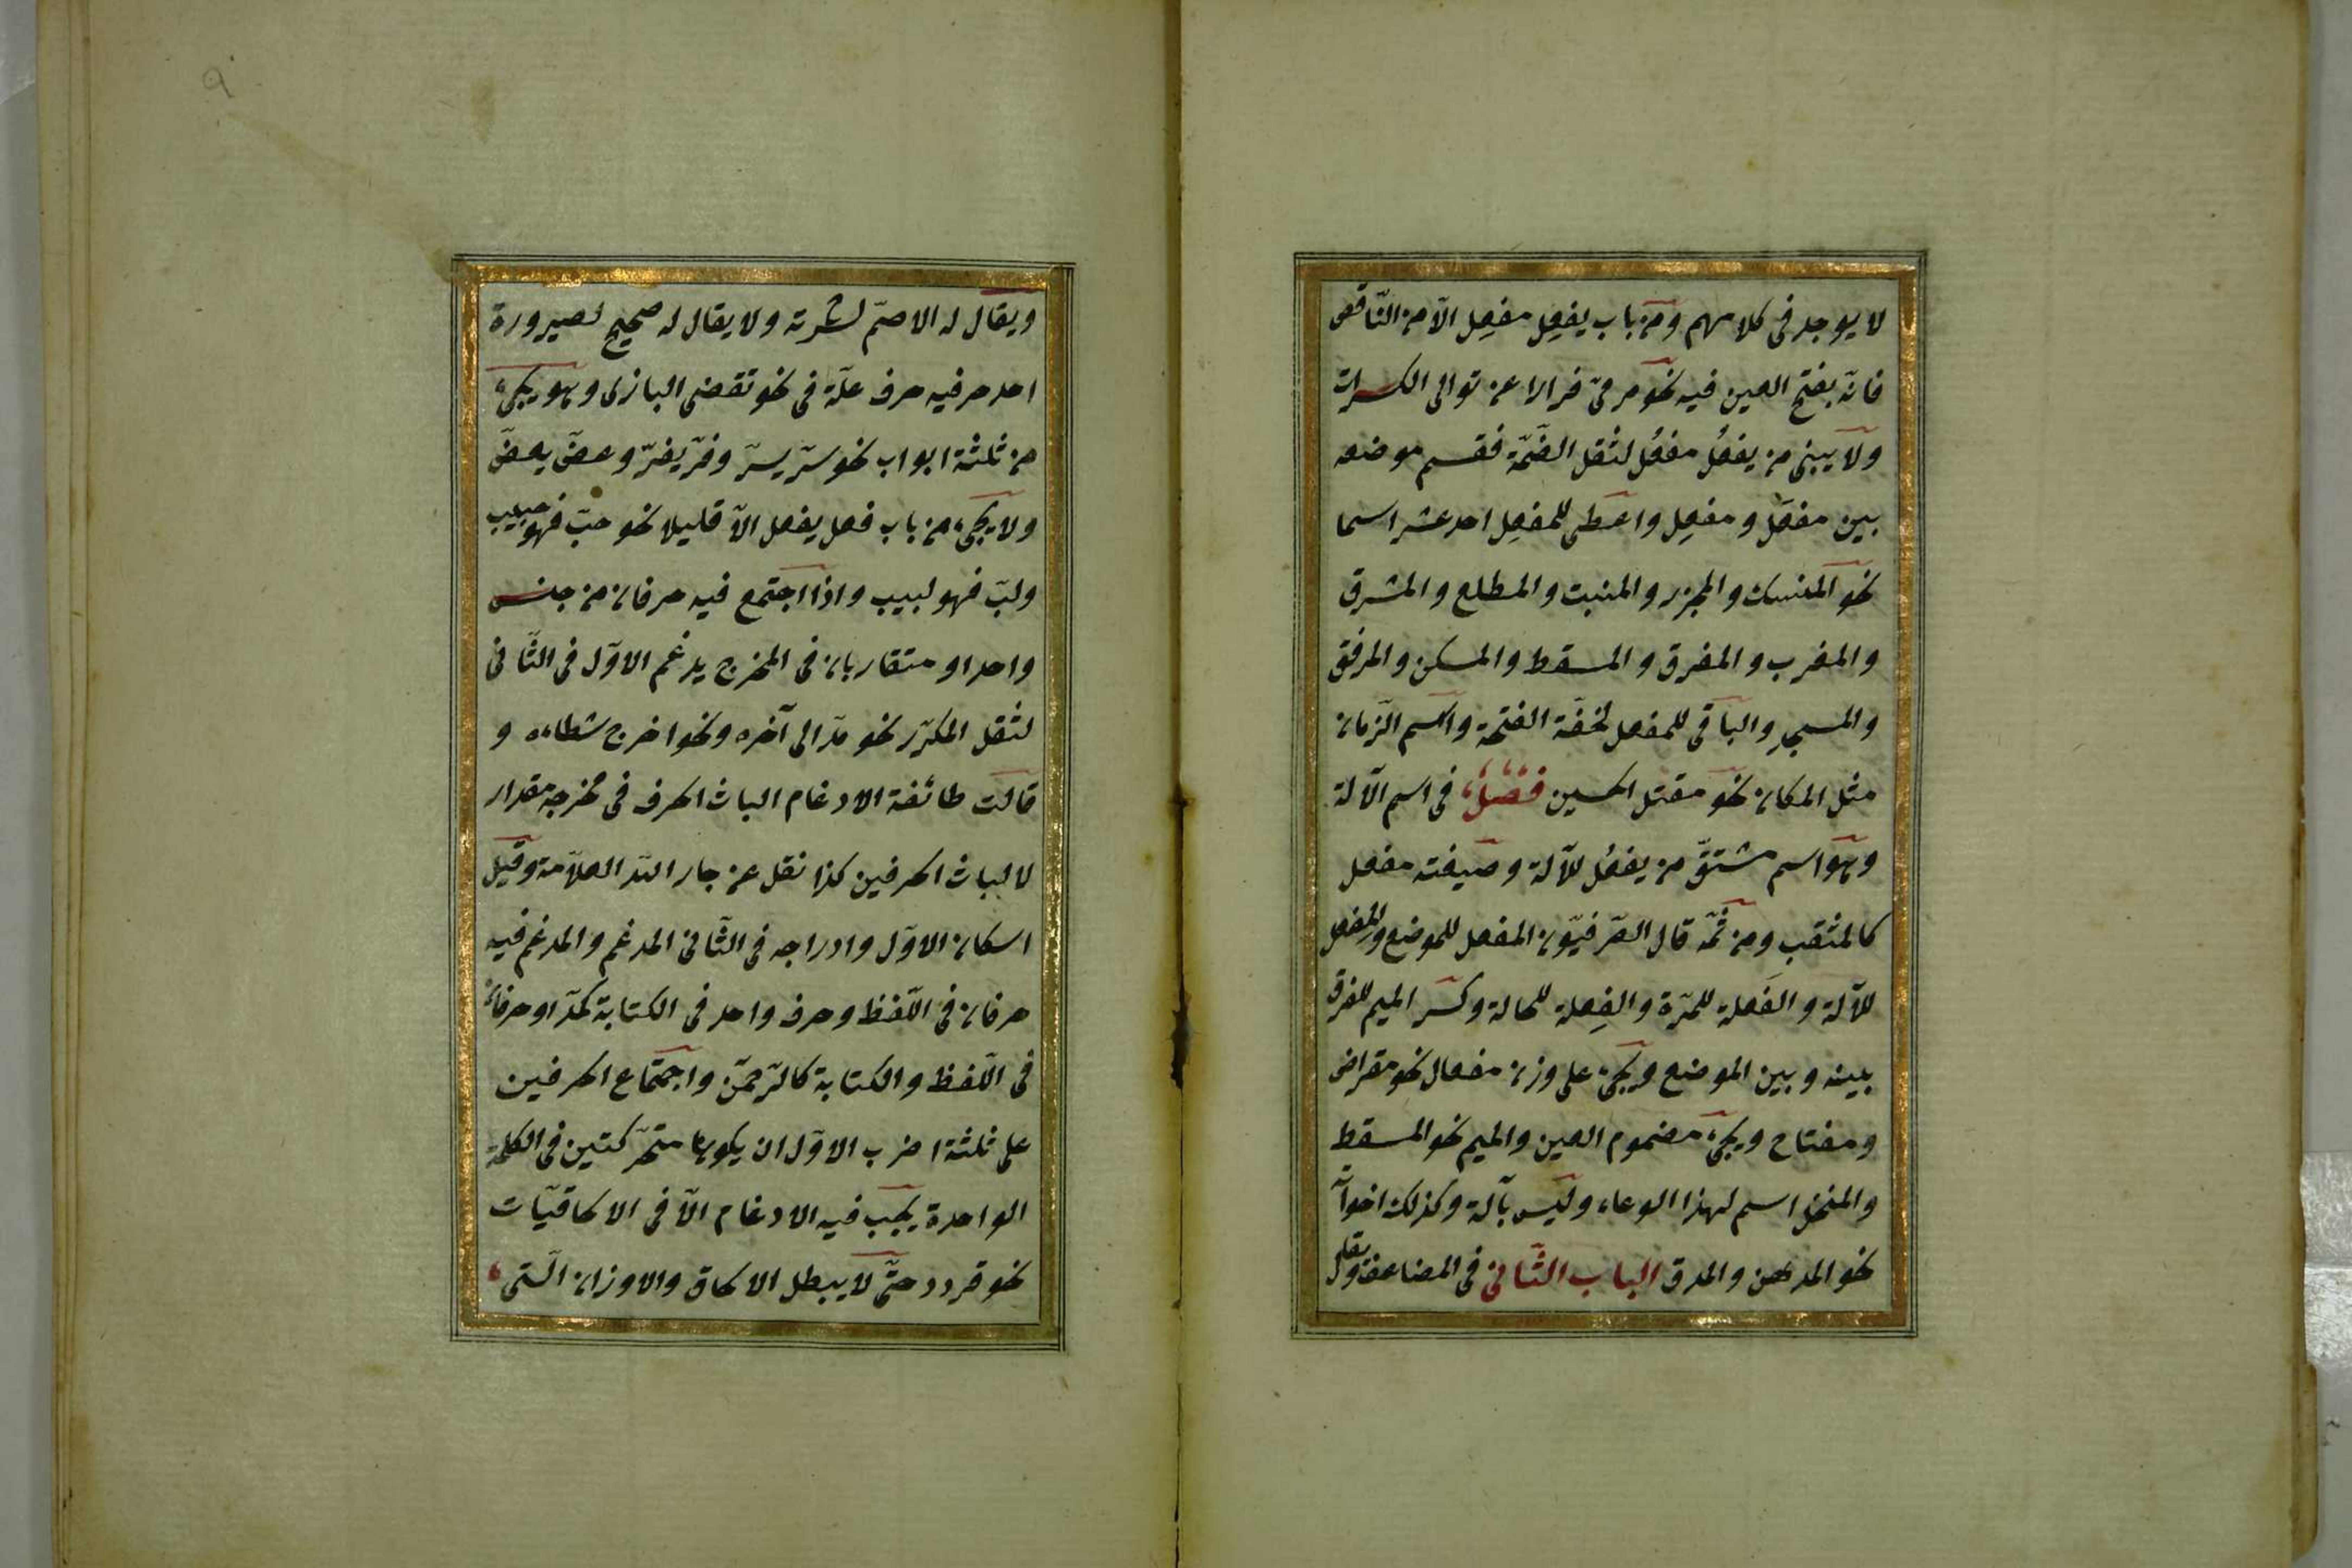 لا يوجد فى كلامهم ومن باب يفعِل مفعِل الّا من النّاقص
فانّه بفتح العين فيه نحو مرمىً فرارا عن توالى الكسرات
ولا يبنى من يفعُل مفعُل لثقل الضّمّة فقسم موضعه
بين مفعَل و مفعِل واعطى للمفعِل احد عشر اسما
نحو المنسك والمجزر والمنبت والمطلع والمشرق
والمغرب والمفرق والمسقط والمسكن والمرفق
والمسجد والباقى للمفعل لخفّة الفتحة واسم الزّمان
مثل المكان نحو مقتل الحسين فصل فى اسم الآلة
وهو اسم مشتقّ من يفعُل للآلة وصيغته مفعل
كالمثقب ومن ثمّه قال الصّرفيّون المفعل للموضع والمفعل
للآلة والفَعلة للمرّة والفِعلة للحالة وكسر الميم للفرق
بينه وبين الموضع ويجئ على وزن مفعال نحو مقراض
ومفتاح ويجئ مضموم العين والميم نحو المسقط
والمنخل اسم لهذا الوعاء وليس بآلة وكذلك اخواته
نحو المدهن والمدق الباب الثّانى فى المضاعف
ويقال له الاصمّ لشدته ولا يقال له صحيح لصيرورة
احد حرفيه حرف علّة فى نحو تقضى البازى وهو يجئ
من ثلثة ابواب نحو سَرّ يسرّ وفرّ يفرّ وعضّ يعضّ
ولا يجئ من باب فعل يفعل الّا قليلا نحو حبّ فهو حبيب
ولبّ فهو لبيب واذا اجتمع فيه حرفان من جنس
واحد او متقاربان فى المخرج يدغم الاوّل فى الثّانى
لثقل المكرّر نحو مدّ الى آخره ونحو اخرج شطاءه و
قالت طائفة الادغام الباث الحرف فى مخرجه مقدار
الباث الحرفين كذا نقل عن جار اللّه العلّامة وقيل
اسكان الاوّل وادراجه فى الثّانى المدغم والمدغم فيه
حرفان فى اللّفظ وحرف واحد فى الكتابة كمدّ او حرفان
فى اللّفظ والكتابة كالرّحمن واجتماع الحرفين
على ثلثة اضرب الاوّل ان يكونا متحرّكتين فى الكلمة
الواحدة يجب فيه الادغام الّا فى الالحاقيّات
نحو قردد حتّى لا يبطل الالحاق والاوزان الّتى